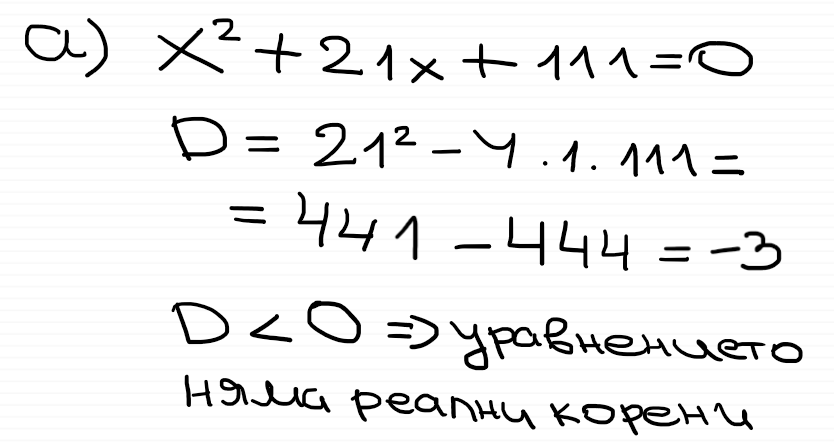 а) x² + 21x + 111 = 0
D = 21² - 4 . 1 . 111 =
= 441 - 444 = -3
D < 0 => уравнението
няма реални корени